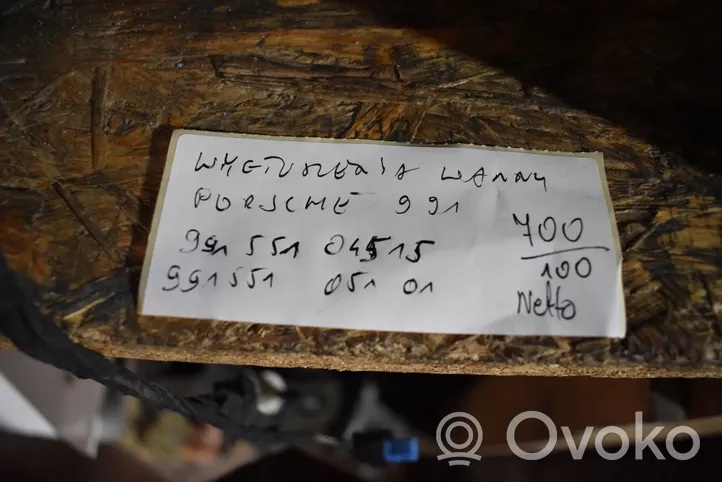 WYGŁUSZENIA WANNY
PORSCHE 991
991 551 045 15
991 551 051 01
700
100
Netto
Ovoko